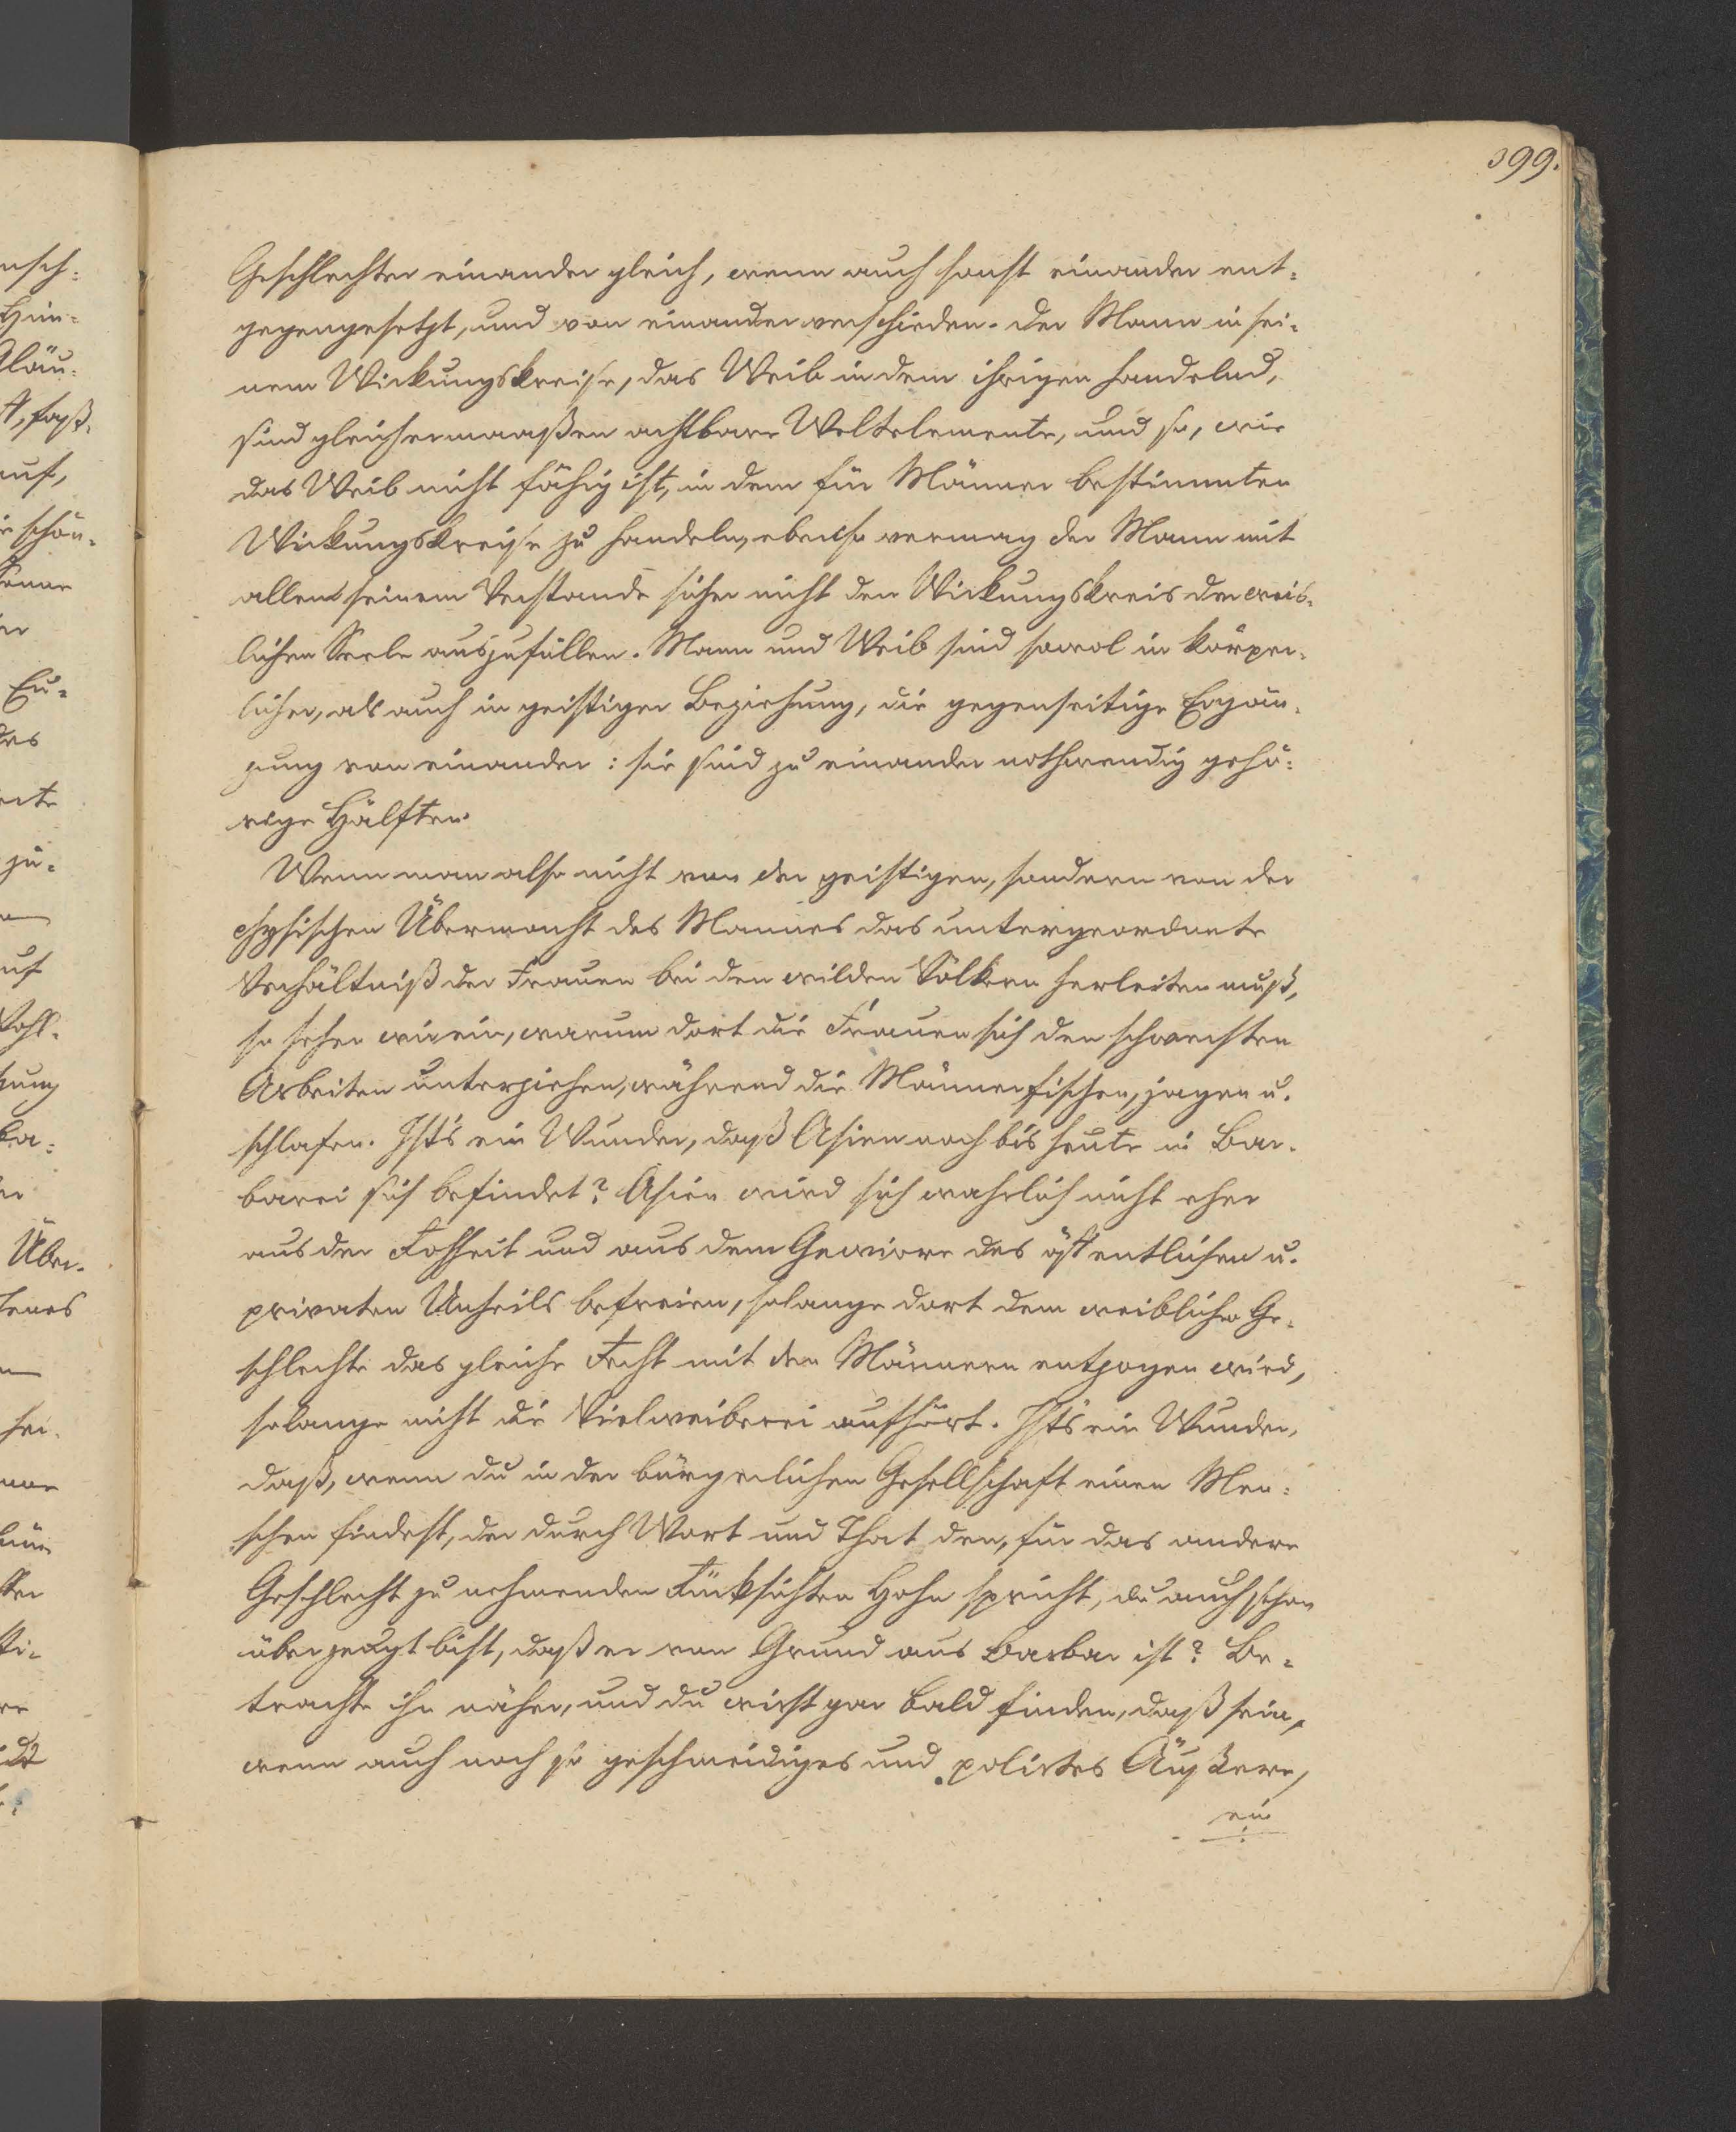 399.
Geschlechter einander gleich, wenn auch sonst einander ent-
gegengesetzt, und von einander verschieden. Der Mann in sei-
nem Wirkungskreise, das Weib in dem ihrigen handelnd,
sind gleichermaaßen achtbare Weltelemente, und so, wie
das Weib nicht fähig ist, in dem für Männer bestimmten
Wirkungskreise zu handeln, ebenso vermag der Mann mit
allem seinem Verstande sicher nicht den Wirkungskreis der weib-
lichen Seele auszufüllen. Mann und Weib sind sowol in körper-
licher, als auch in geistiger Beziehung, die gegenseitige Ergän-
zung von einander: sie sind zu einander nothwendig gehö-
rige Hälften.
Wenn man also nicht von der geistigen, sondern von der
physischen Übermacht des Mannes das untergeordnete
Verhältniß der Frauen bei den wilden Völkern herleiten muß,
so sehen wir ein, warum dort die Frauen sich den schwersten
Arbeiten unterziehen, während die Männer fischen, jagen u.
schlafen. Ist's ein Wunder, daß Asien noch bis heute in Bar-
barei sich befindet? Asien wird sich wahrlich nicht eher
aus der Rohheit und aus dem Gewirre des öffentlichen u.
privaten Unheils befreien, solange dort dem weiblichen Ge-
schlechte das gleiche Recht mit den Männern entzogen wird,
solange nicht die Vielweiberei aufhört. Ist's ein Wunder,
daß, wenn du in der bürgerlichen Gesellschaft einen Men-
schen findest, der durch Wort und That den, für das andere
Geschlecht zu nehmenden Rücksichten Hohn spricht, du auch schon
überzeugt bist, daß er von Grund aus Barbar ist? Be-
trachte ihn näher, und du wirst gar bald finden, daß sein,
wenn auch noch so geschmeidiges und polirtes Äußere,
ein